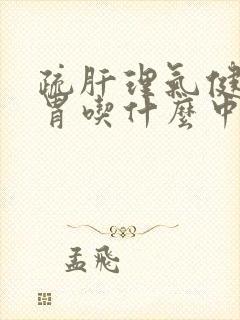 疏肝理氣健
胃喫什麼中
孟飛